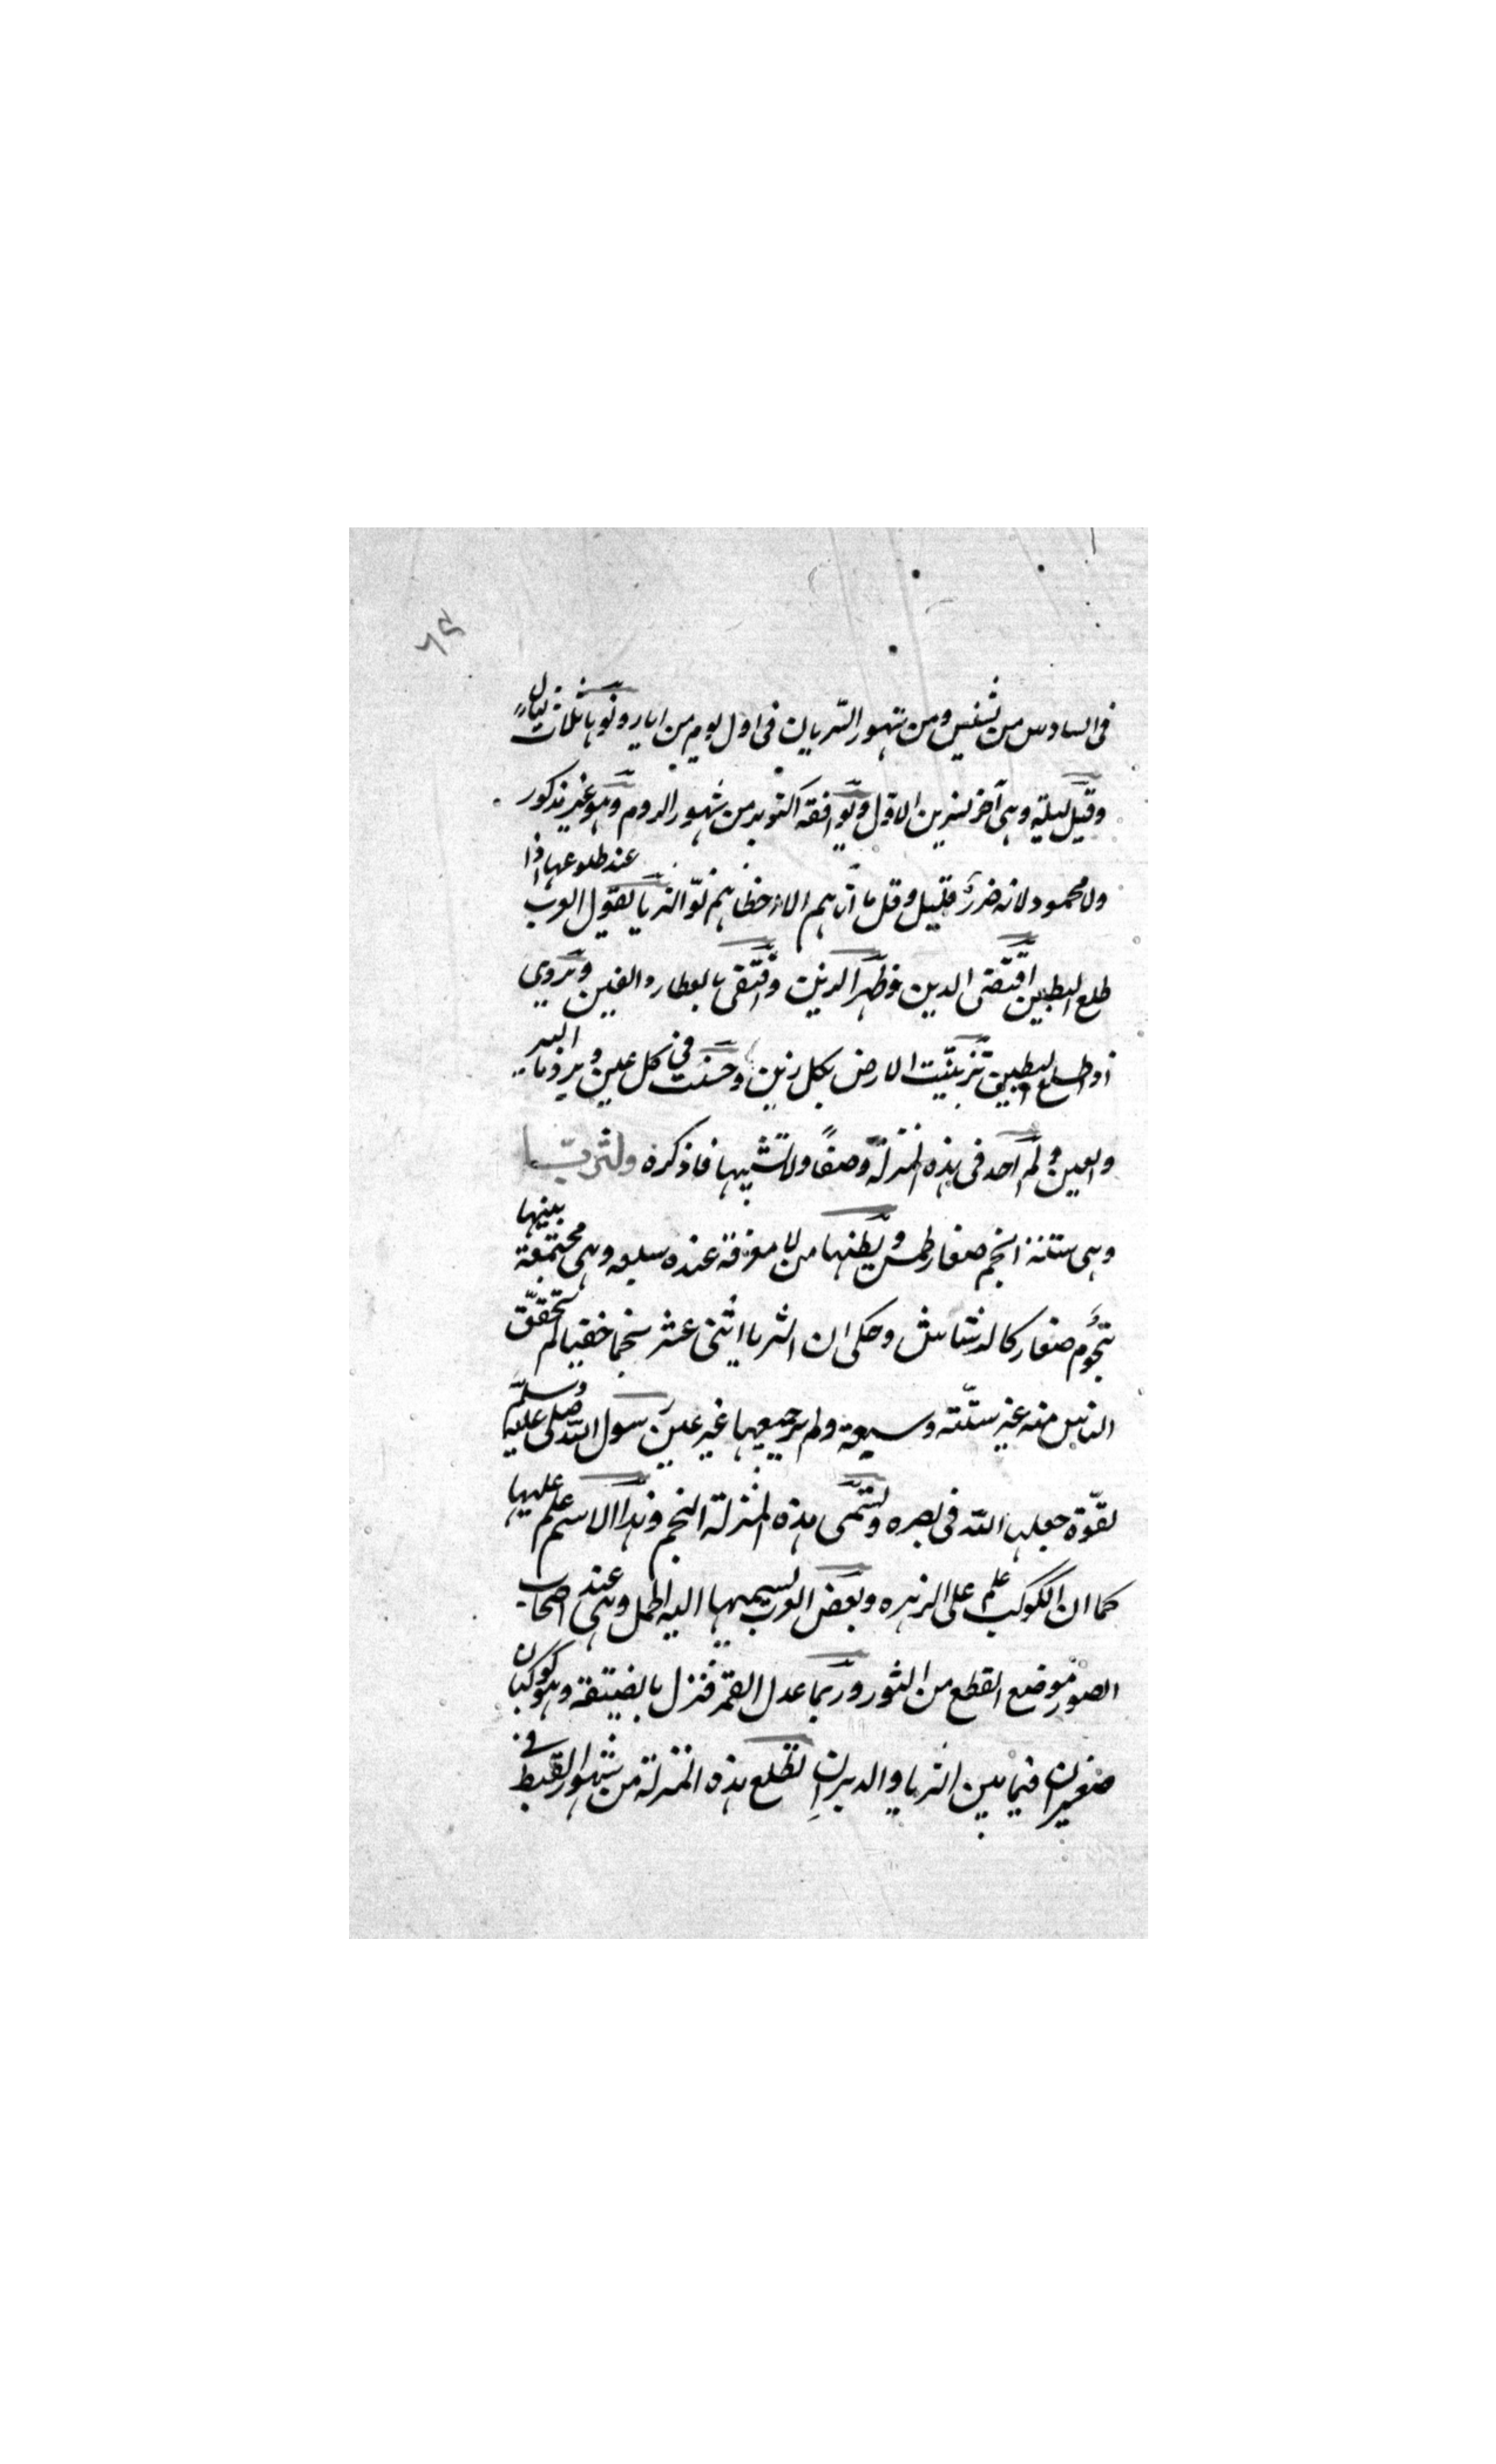 ٦٤
في السادس من بشنس ومن شهور السريان في اول يوم من ايار ونوها ثلاث ليال
وقيل ليلة وهي آخر تشرين الاول ويوافقه اكتوبر من شهور الروم وهو غير مذكور
ولا محمود لانه ضرر قليل وقل ما اتاهم الا اخطاهم نوّ الثريا يقول العرب عند طلوعها اذا
طلع البطين اقتضى الدين وظهر الزين واقتفى بالعطار والقين ويروي
اذا طلع البطين تزينت الارض بكل زين وحسنت في كل عين
والعين ولم اجد في هذه المنزلة وصفًا ولا تشبيها فاذكره ولثريا
وهي ستة انجم صغار طمس ويظنها من لا معرفة عنده سبعه وهي مجتمعة بينها
نجوم صغار كالرشاش وحكى ان الثريا اثنى عشر نجما خفيا لم تحقق
الناس منه غير ستّة وسبعة ولم ير جميعها غير عين رسول الله صلى عليه وسلم
لقوّة جعلها الله في بصره وتسمّى هذه المنزلة النجم وهذا الاسم علم عليها
كما ان الكوكب علم على الزهره وبعض العرب يسميها الية الحمل وهي عند اصحاب
الصور موضع القطع من الثور وربما عدل القمر فنزل بالضيقة وهو كوكبان
صغيران فيما بين الثريا والدبران تطلع هذه المنزلة من شهور القبط في